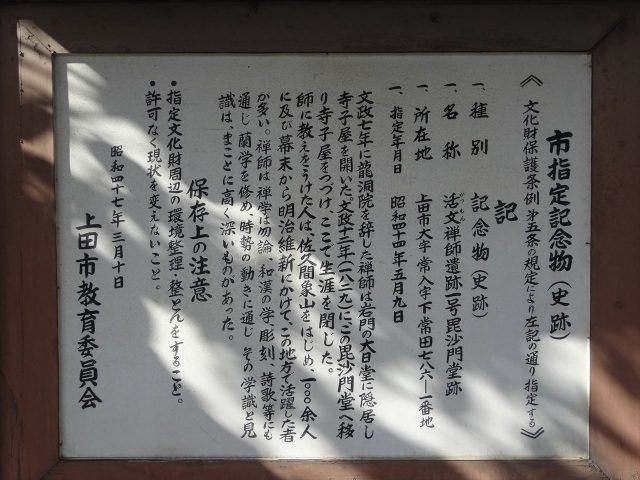 市指定記念物(史跡)
《文化財保護条例第五条の規定により左記の通り指定する》
記
一、種別 記念物(史跡)
一、名称 活文禅師遺跡一号毘沙門堂跡
一、所在地 上田市大字常入字下常田七八六―一番地
一、指定年月日 昭和四十四年五月九日
文政七年に龍洞院を辞した禅師は岩門の大日堂に隠居し
寺子屋を開いた文政十二年(一八二九)にこの毘沙門堂へ移
り寺子屋をつづけ、ここで生涯を閉じた。
師に教えをうけた人は、佐久間象山をはじめ、一〇〇〇余人
に及び幕末から明治維新にかけて、この地方で活躍した者
が多い。禅師は禅学は勿論、和漢の学、彫刻、詩歌等にも
通じ蘭学を修め、時勢の動きに通じ その学識と見
識は、まことに高く深いものがあった。
保存上の注意
•指定文化財周辺の環境整理、整とんをすること。
•許可なく現状を変えないこと。
昭和四十七年三月十日
上田市教育委員会